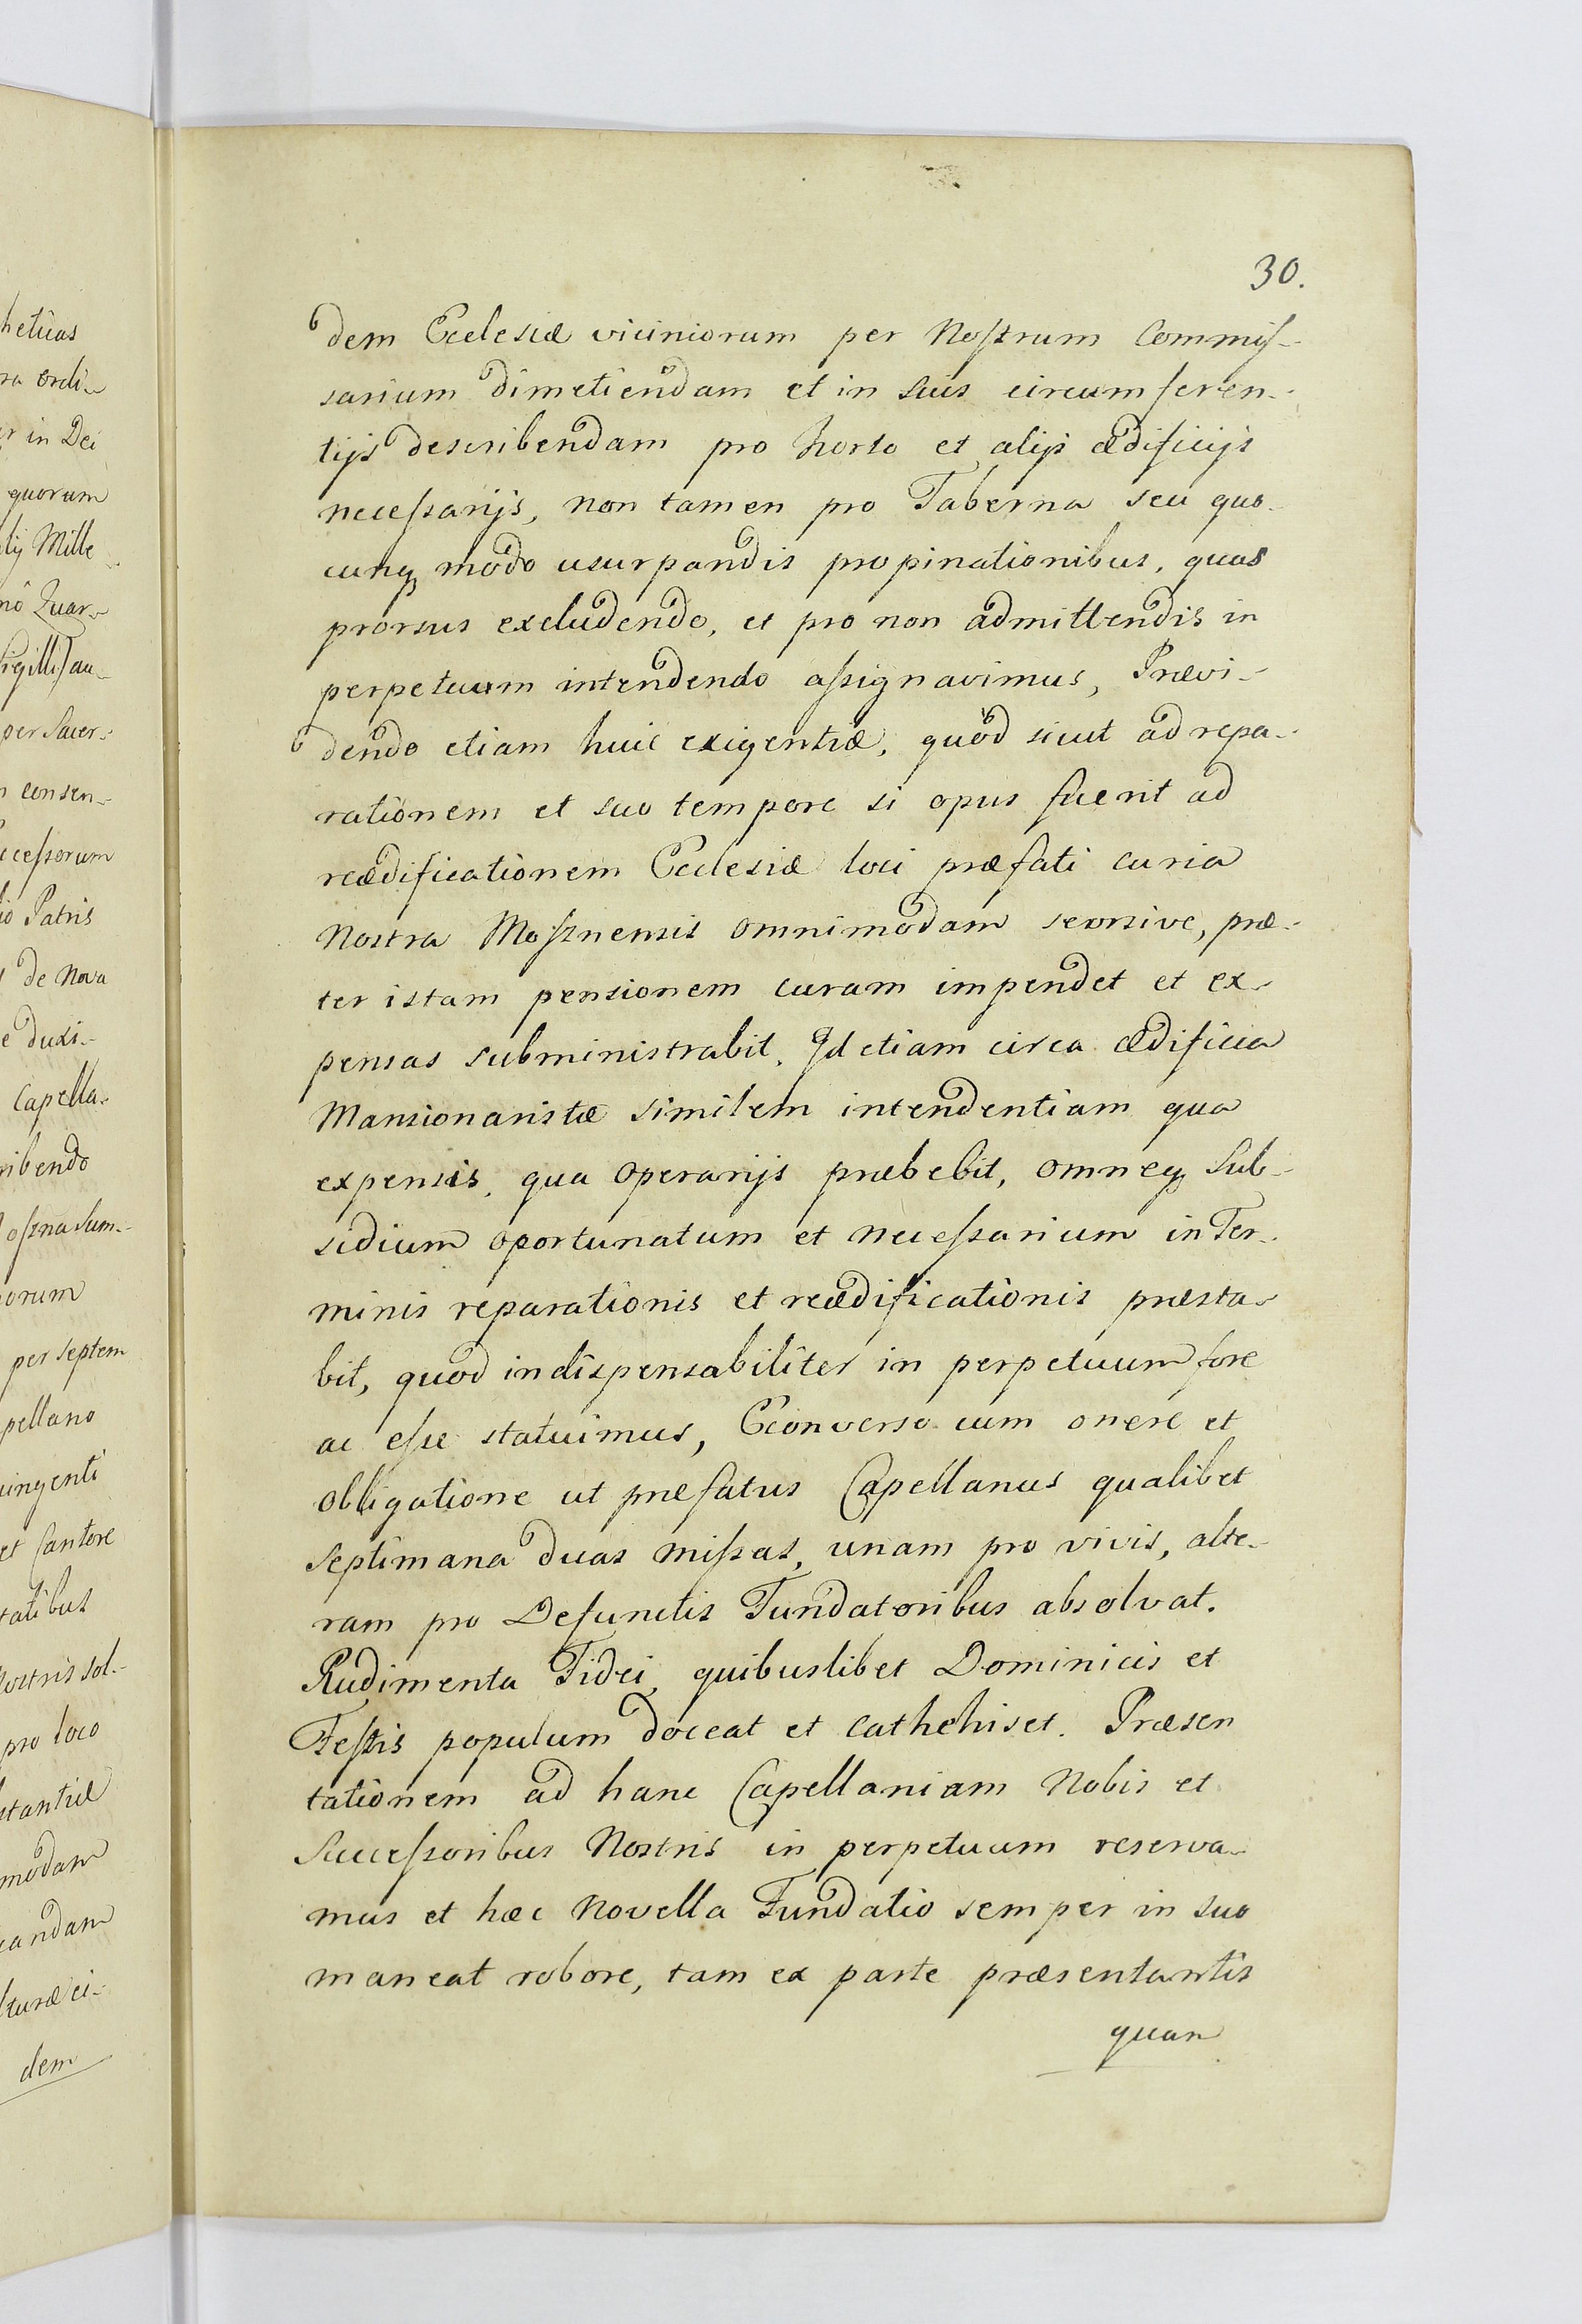 heticas
ra ordi-
er in Dei
quorum
lij Mille
nô Quar-
Sigilli Sau-
per Sacer-
n consen-
ccessorum
io Patris
de Nova
e duxi-
Capella-
ribendo
oszna Sum-
orum
per septem
pellano
uingenti
et Cantore
tatibus
Nostris sol-
pro loco
stantiæ
modam
candam
lturæ ei-
dem
30.
dem Ecclesiæ viciniorum per Nostrum Commis-
sarium dimetiendam et in suis circumferen-
tijs describendam pro horto et alijs ædificijs
necessarijs, non tamen pro Taberna seu quo-
cunq modo usurpandis propinationibus, quas
prorsus excludendo, et pro non admittendis in
perpetuum intendendo assignavimus, Prævi-
dendo etiam huic exigentiæ, quòd sicut ad repa-
rationem et suo tempore si opus fuerit ad
reædificationem Ecclesiæ loci præfati curia
Nostra Mosznensis omnimodam seorsive, præ-
ter istam pensionem curam impendet et ex-
pensas subministrabit. Id etiam circa ædificia
Mansionaristæ similem intendentiam qua
expensis, qua operarijs præbebit, omneq Sub-
sidium oportunatum et necessarium in Ter-
minis reparationis et reædificationis præsta-
bit, quod indispensabiliter in perpetuum fore
ac esse statuimus, Econverso cum onere et
obligatione ut præfatus Capellanus qualibet
septimana duas missas, unam pro vivis, alte-
ram pro Defunctis Fundatoribus absolvat.
Rudimenta Fidei quibuslibet Dominicis et
Festis populum doceat et cathehiset. Præsen
tationem ad hanc Capellaniam Nobis et
Successoribus Nostris in perpetuum reserva-
mus et hæc Novella Fundatio semper in suo
maneat robore, tam ex parte præsentantis
quan